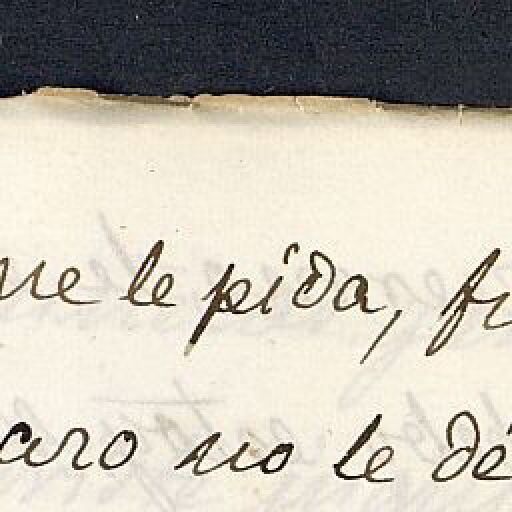 ue le pida, fu
aro no le dé